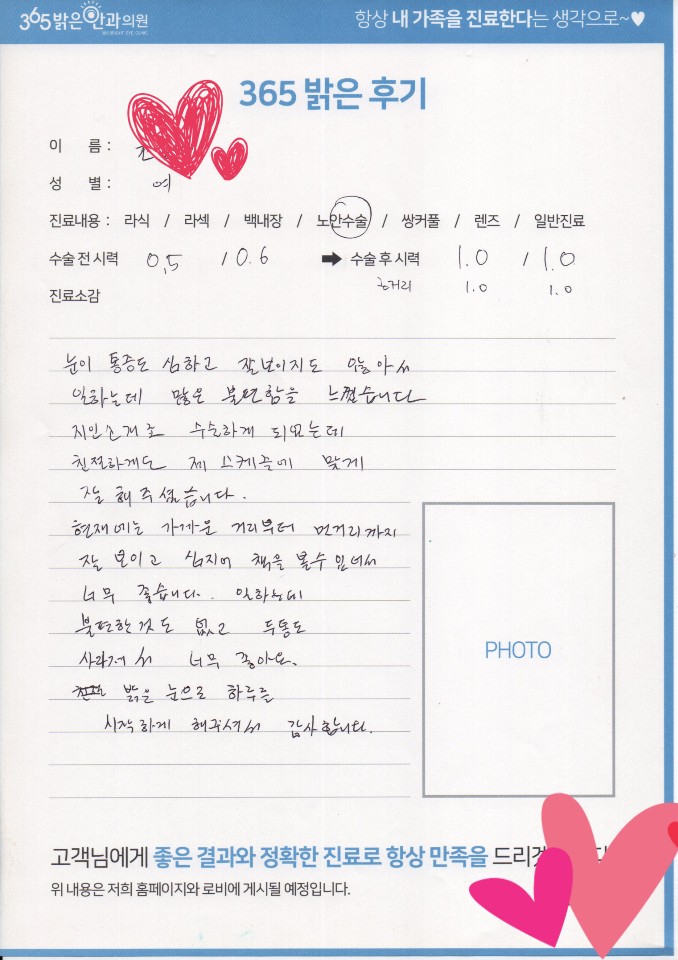 365밝은안과의원
항상 내 가족을 진료한다는 생각으로~♥
365 밝은 후기
이 름 :
성 별 : 여
진료내용 : 라식 / 라섹 / 백내장 / 노안수술 / 쌍커풀 / 렌즈 / 일반진료
수술 전 시력 0.5 / 0.6 ➡ 수술 후 시력 1.0 / 1.0
근거리 1.0 1.0
진료소감
눈이 통증도 심하고 잘보이지도 않아서
일하는데 많은 불편함을 느꼈습니다
지인소개로 수술하게 되었는데
친절하게도 제 스케줄에 맞게
잘 해주셨습니다.
현재에는 가까운 거리부터 먼거리까지
잘 보이고 심지어 책을 볼수 있어서
너무 좋습니다. 일하는데
불편한것도 없고 두통도
사라져서 너무 좋아요.
밝은 눈으로 하루를
시작하게 해주셔서 감사합니다.
PHOTO
고객님에게 좋은 결과와 정확한 진료로 항상 만족을
위 내용은 저희 홈페이지와 로비에 게시될 예정입니다.